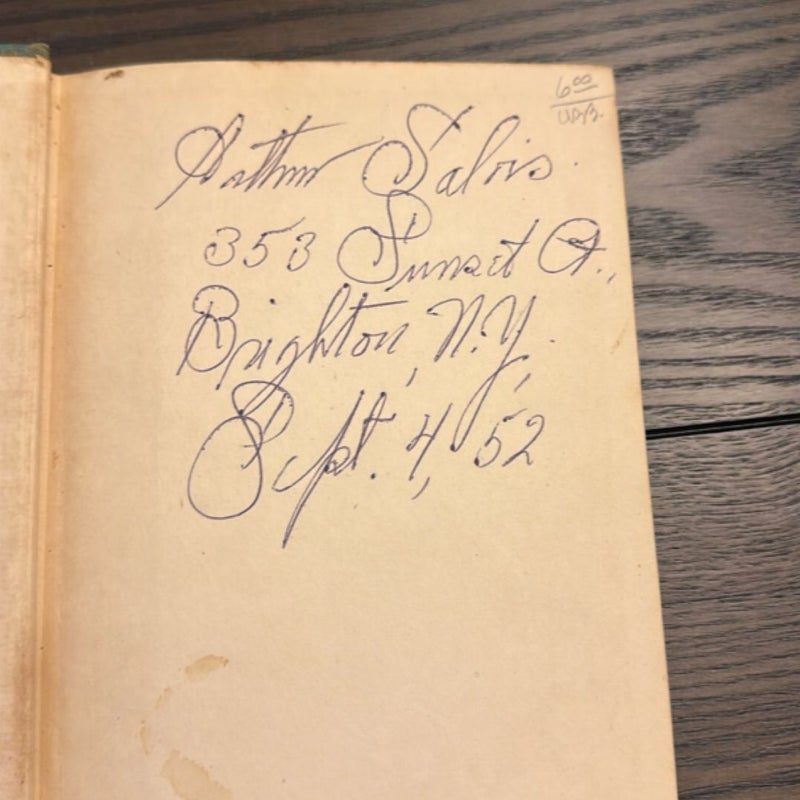 6.00
Arthur Salvis.
353 Sunset Ct.,
Brighton, N.Y.,
Sept. 4, 52